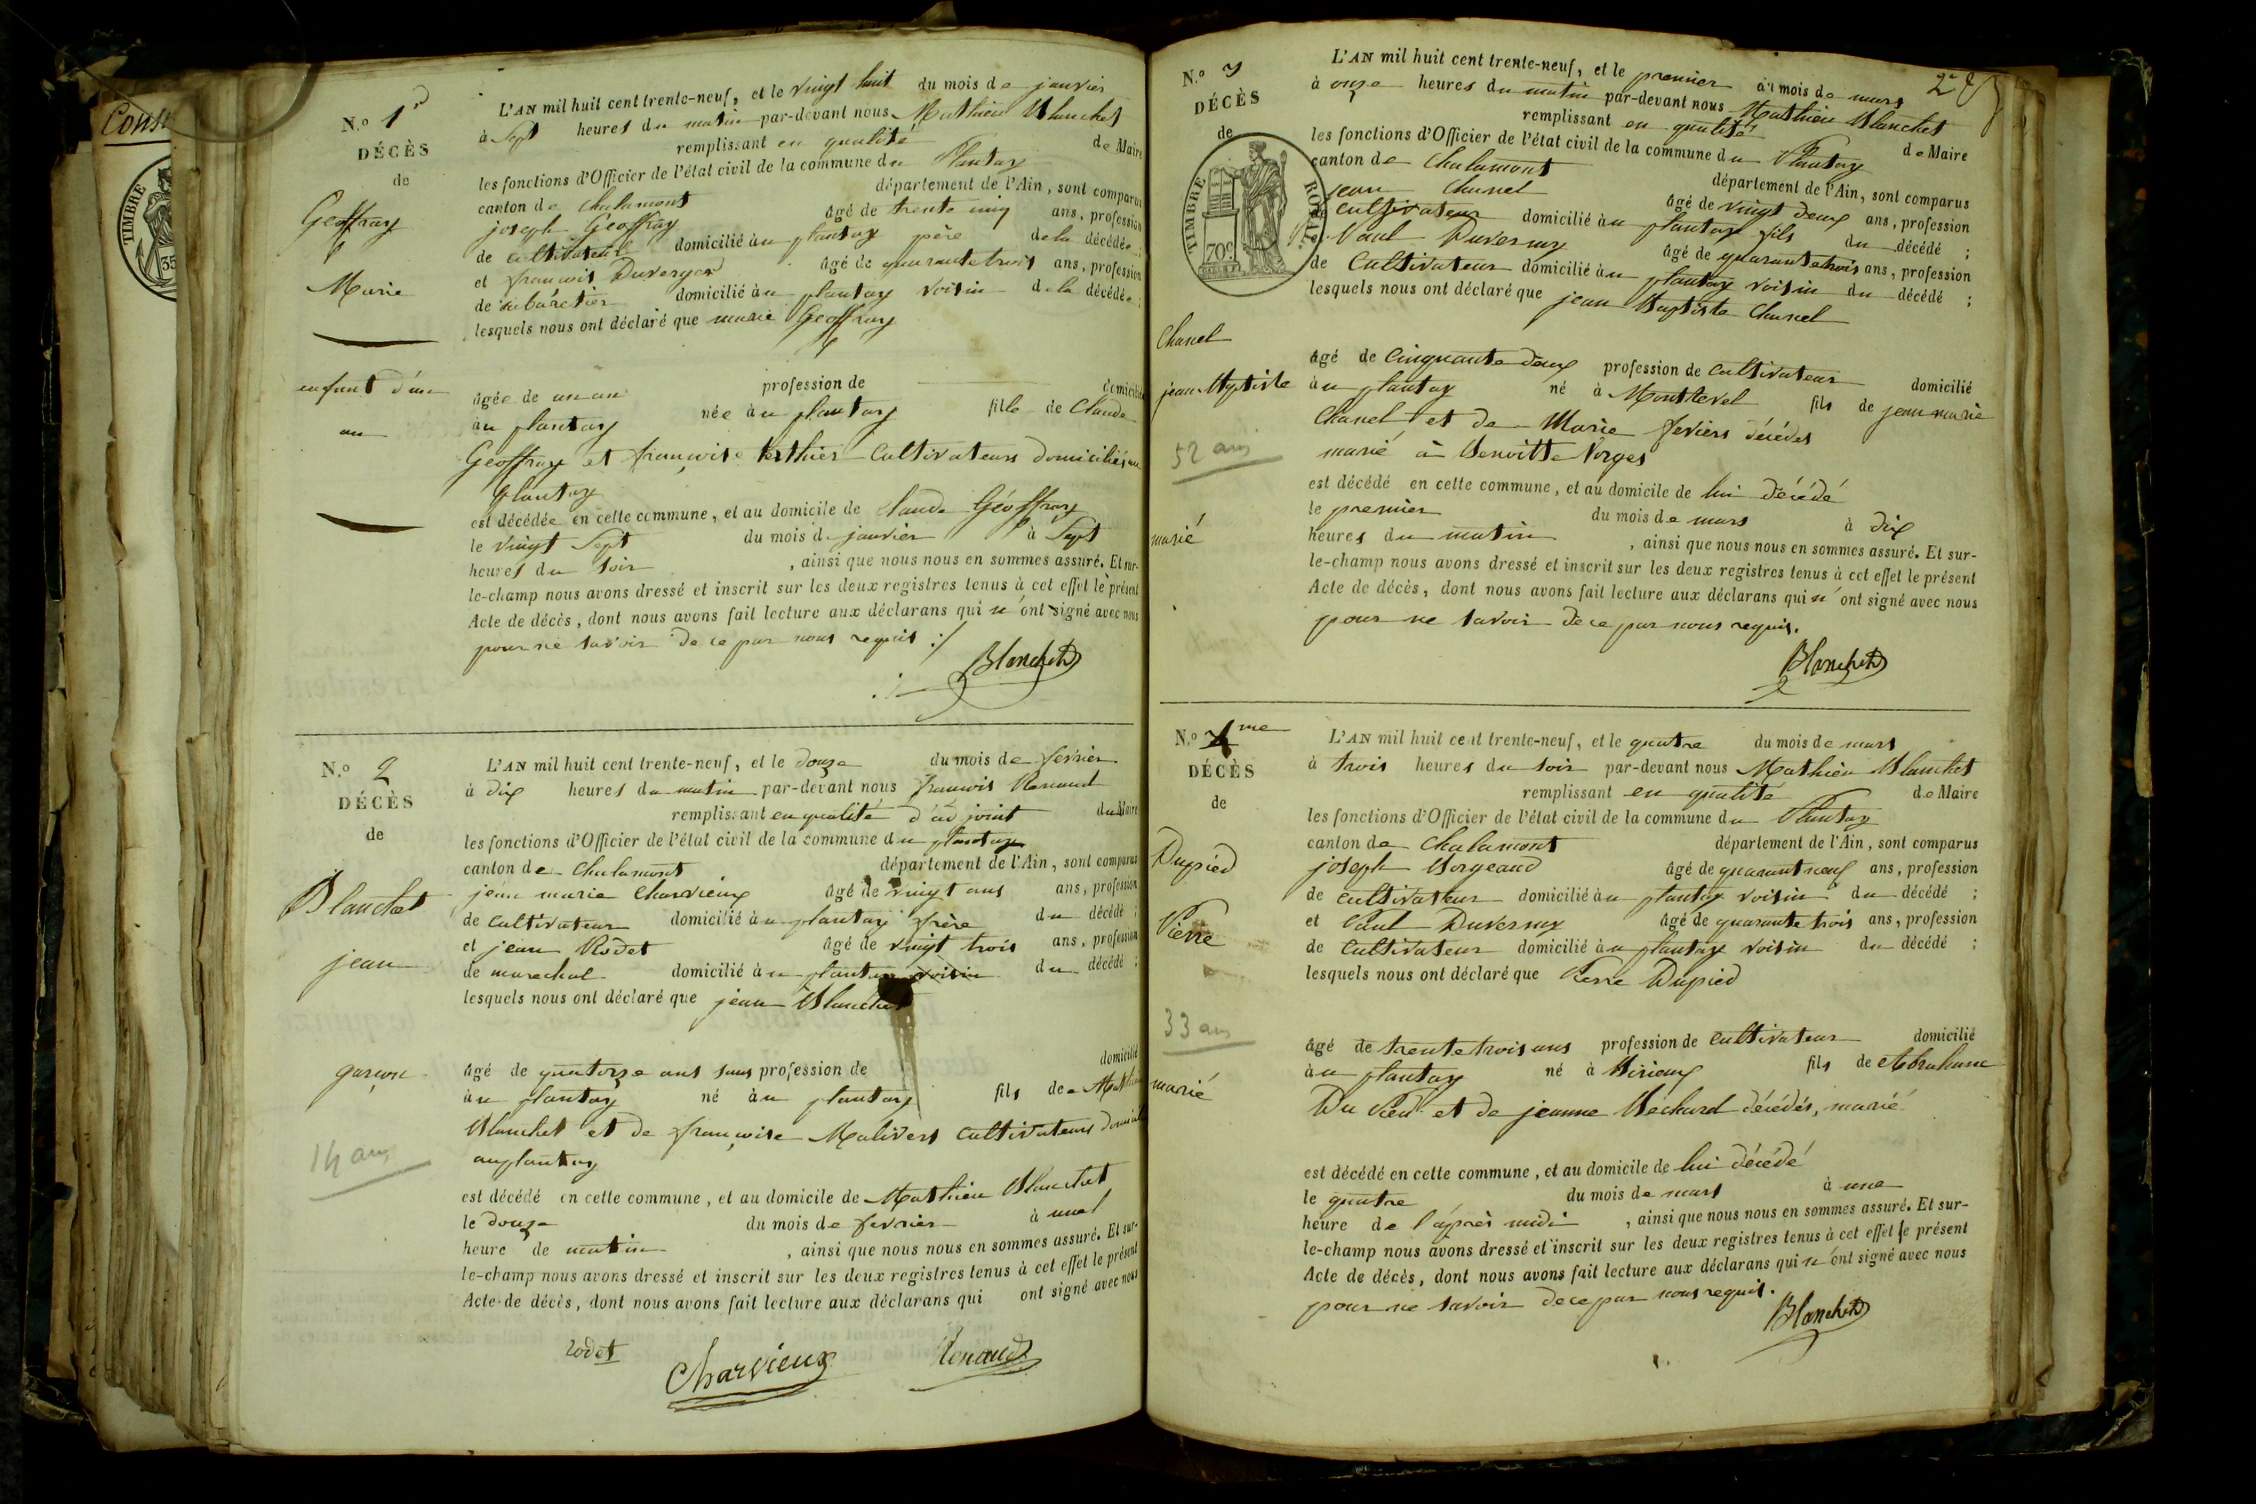 Const
TIMBRE
35
N.o 1er
DÉCÈS
de
Geoffray
Marie
enfant d'un
an
L'AN mil huit cent trente-neuf, et le vingt huit du mois de janvier
à Sept heures du matin par-devant nous Mathieu Blanchet
remplissant en qualité de Maire
les fonctions d'Officier de l'état civil de la commune du Plantay
canton de Chalamont département de l'Ain, sont comparus
joseph Geoffray âgé de trente cinq ans, profession
de cultivateur domicilié au plantay père de la décédée ;
et francois Duverger âgé de quarante trois ans, profession
de domicilié au plantay voisin de la décédée ;
lesquels nous ont déclaré que marie Geoffray
âgée de un an profession de domicilié
au plantay née au plantay fille de Claude
Geoffray et françoise Berthier Cultivateurs domiciliés au
plantay
est décédée en cette commune, et au domicile de claude Géoffray
le vingt Sept du mois de janvier à Sept
heures du soir , ainsi que nous nous en sommes assuré. Et sur-
le-champ nous avons dressé et inscrit sur les deux registres tenus à cet effet le présent
Acte de décès, dont nous avons fait lecture aux déclarans qui n'ont signé avec nous
pour ne savoir de ce par nous requis ./
Blanchet
N.o 2
DÉCÈS
de
Blanchet
jean
garçon
14 ans
L'AN mil huit cent trente-neuf, et le douze du mois de fevrier
à dix heures du matin par-devant nous francois Renaud
remplissant en qualité d'adjoint du Maire
les fonctions d'Officier de l'état civil de la commune du plantay
canton de Chalamont département de l'Ain, sont comparus
jean marie Charvieux âgé de vingt ans ans, profession
de cultivateur domicilié au plantay frère du décédé ;
et jean Rodet âgé de vingt trois ans, profession
de marechal domicilié au plantay voisin du décédé ;
lesquels nous ont déclaré que jean Blanchet
âgé de quatorze ans sans profession de domicilié
au plantay né au plantay fils de Mathieu
Blanchet et de françoise Malivers cultivateurs
au plantay
est décédé en cette commune, et au domicile de Mathieu Blanchet
le douze du mois de fevrier à une
heure de matin , ainsi que nous nous en sommes assuré. Et sur-
le-champ nous avons dressé et inscrit sur les deux registres tenus à cet effet le présent
Acte de décès, dont nous avons fait lecture aux déclarans qui ont signé avec nous
rodet Charvieux Renaud
2e
N.o 3
DÉCÈS
de
TIMBRE ROYAL
70c.
Chanel
jean Baptiste
52 ans
marié
L'AN mil huit cent trente-neuf, et le premier du mois de mars
à onze heures du matin par-devant nous Mathieu Blanchet
remplissant en qualité de Maire
les fonctions d'Officier de l'état civil de la commune du Plantay
canton de Chalamont département de l'Ain, sont comparus
jean Chanel âgé de vingt deux ans, profession
cultivateur domicilié au plantay fils du décédé ;
Paul Duvernay âgé de quarante trois ans, profession
de Cultivateur domicilié au plantay voisin du décédé ;
lesquels nous ont déclaré que jean Baptiste Chanel
âgé de Cinquante deux profession de cultivateur domicilié
au plantay né à Montlevel fils de jean marie
Chanel et de Marie feviers décédés
marié à Benoitte Vorges
est décédé en cette commune, et au domicile de lui décédé
le premier du mois de mars à dix
heures du matin , ainsi que nous nous en sommes assuré. Et sur-
le-champ nous avons dressé et inscrit sur les deux registres tenus à cet effet le présent
Acte de décès, dont nous avons fait lecture aux déclarans qui n'ont signé avec nous
pour ne savoir de ce par nous requis.
Blanchet
N.o 4me
DÉCÈS
de
Dupied
Pierre
33 ans
marié
L'AN mil huit cent trente-neuf, et le quatre du mois de mars
à trois heures du soir par-devant nous Mathieu Blanchet
remplissant en qualité de Maire
les fonctions d'Officier de l'état civil de la commune du Plantay
canton de Chalamont département de l'Ain, sont comparus
joseph Borgeaud âgé de quarant neuf ans, profession
de cultivateur domicilié au plantay voisin du décédé ;
et Paul Duvernay âgé de quarante trois ans, profession
de Cultivateur domicilié au plantay voisin du décédé ;
lesquels nous ont déclaré que Pierre Dupied
âgé de trente trois ans profession de cultivateur domicilié
au plantay né à Birieux fils de Abraham
Du Pied et de jeanne Bechard décédés, marié
est décédé en cette commune, et au domicile de lui décédé
le quatre du mois de mars à une
heure de l'après midi , ainsi que nous nous en sommes assuré. Et sur-
le-champ nous avons dressé et inscrit sur les deux registres tenus à cet effet le présent
Acte de décès, dont nous avons fait lecture aux déclarans qui n'ont signé avec nous
pour ne savoir de ce par nous requis.
Blanchet